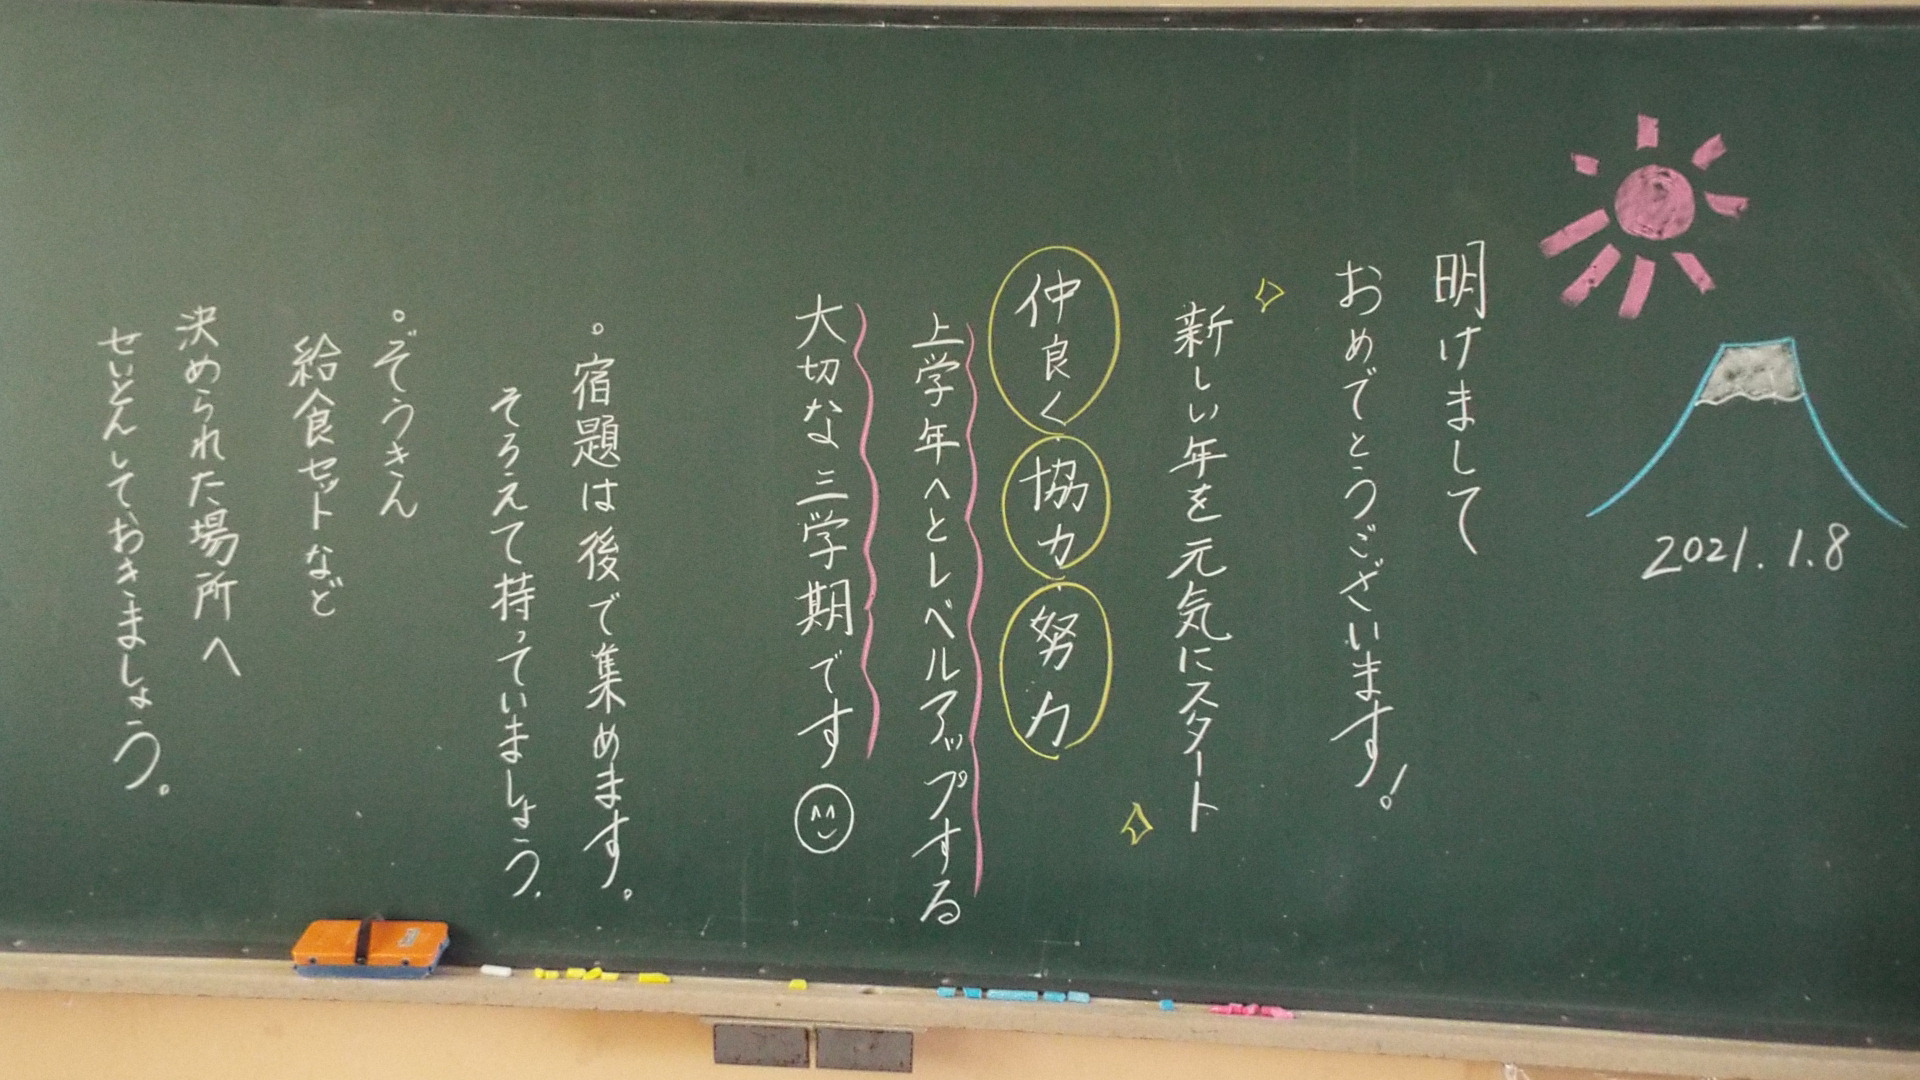 2021.1.8
明けまして
おめでとうございます!
新しい年を元気にスタート
仲良く 協力 努力
上学年へとレベルアップする
大切な三学期です
。宿題は後で集めます。
そろえて持っていましょう.
。ぞうきん
給食セットなど
決められた場所へ
せいとんしておきましょう。